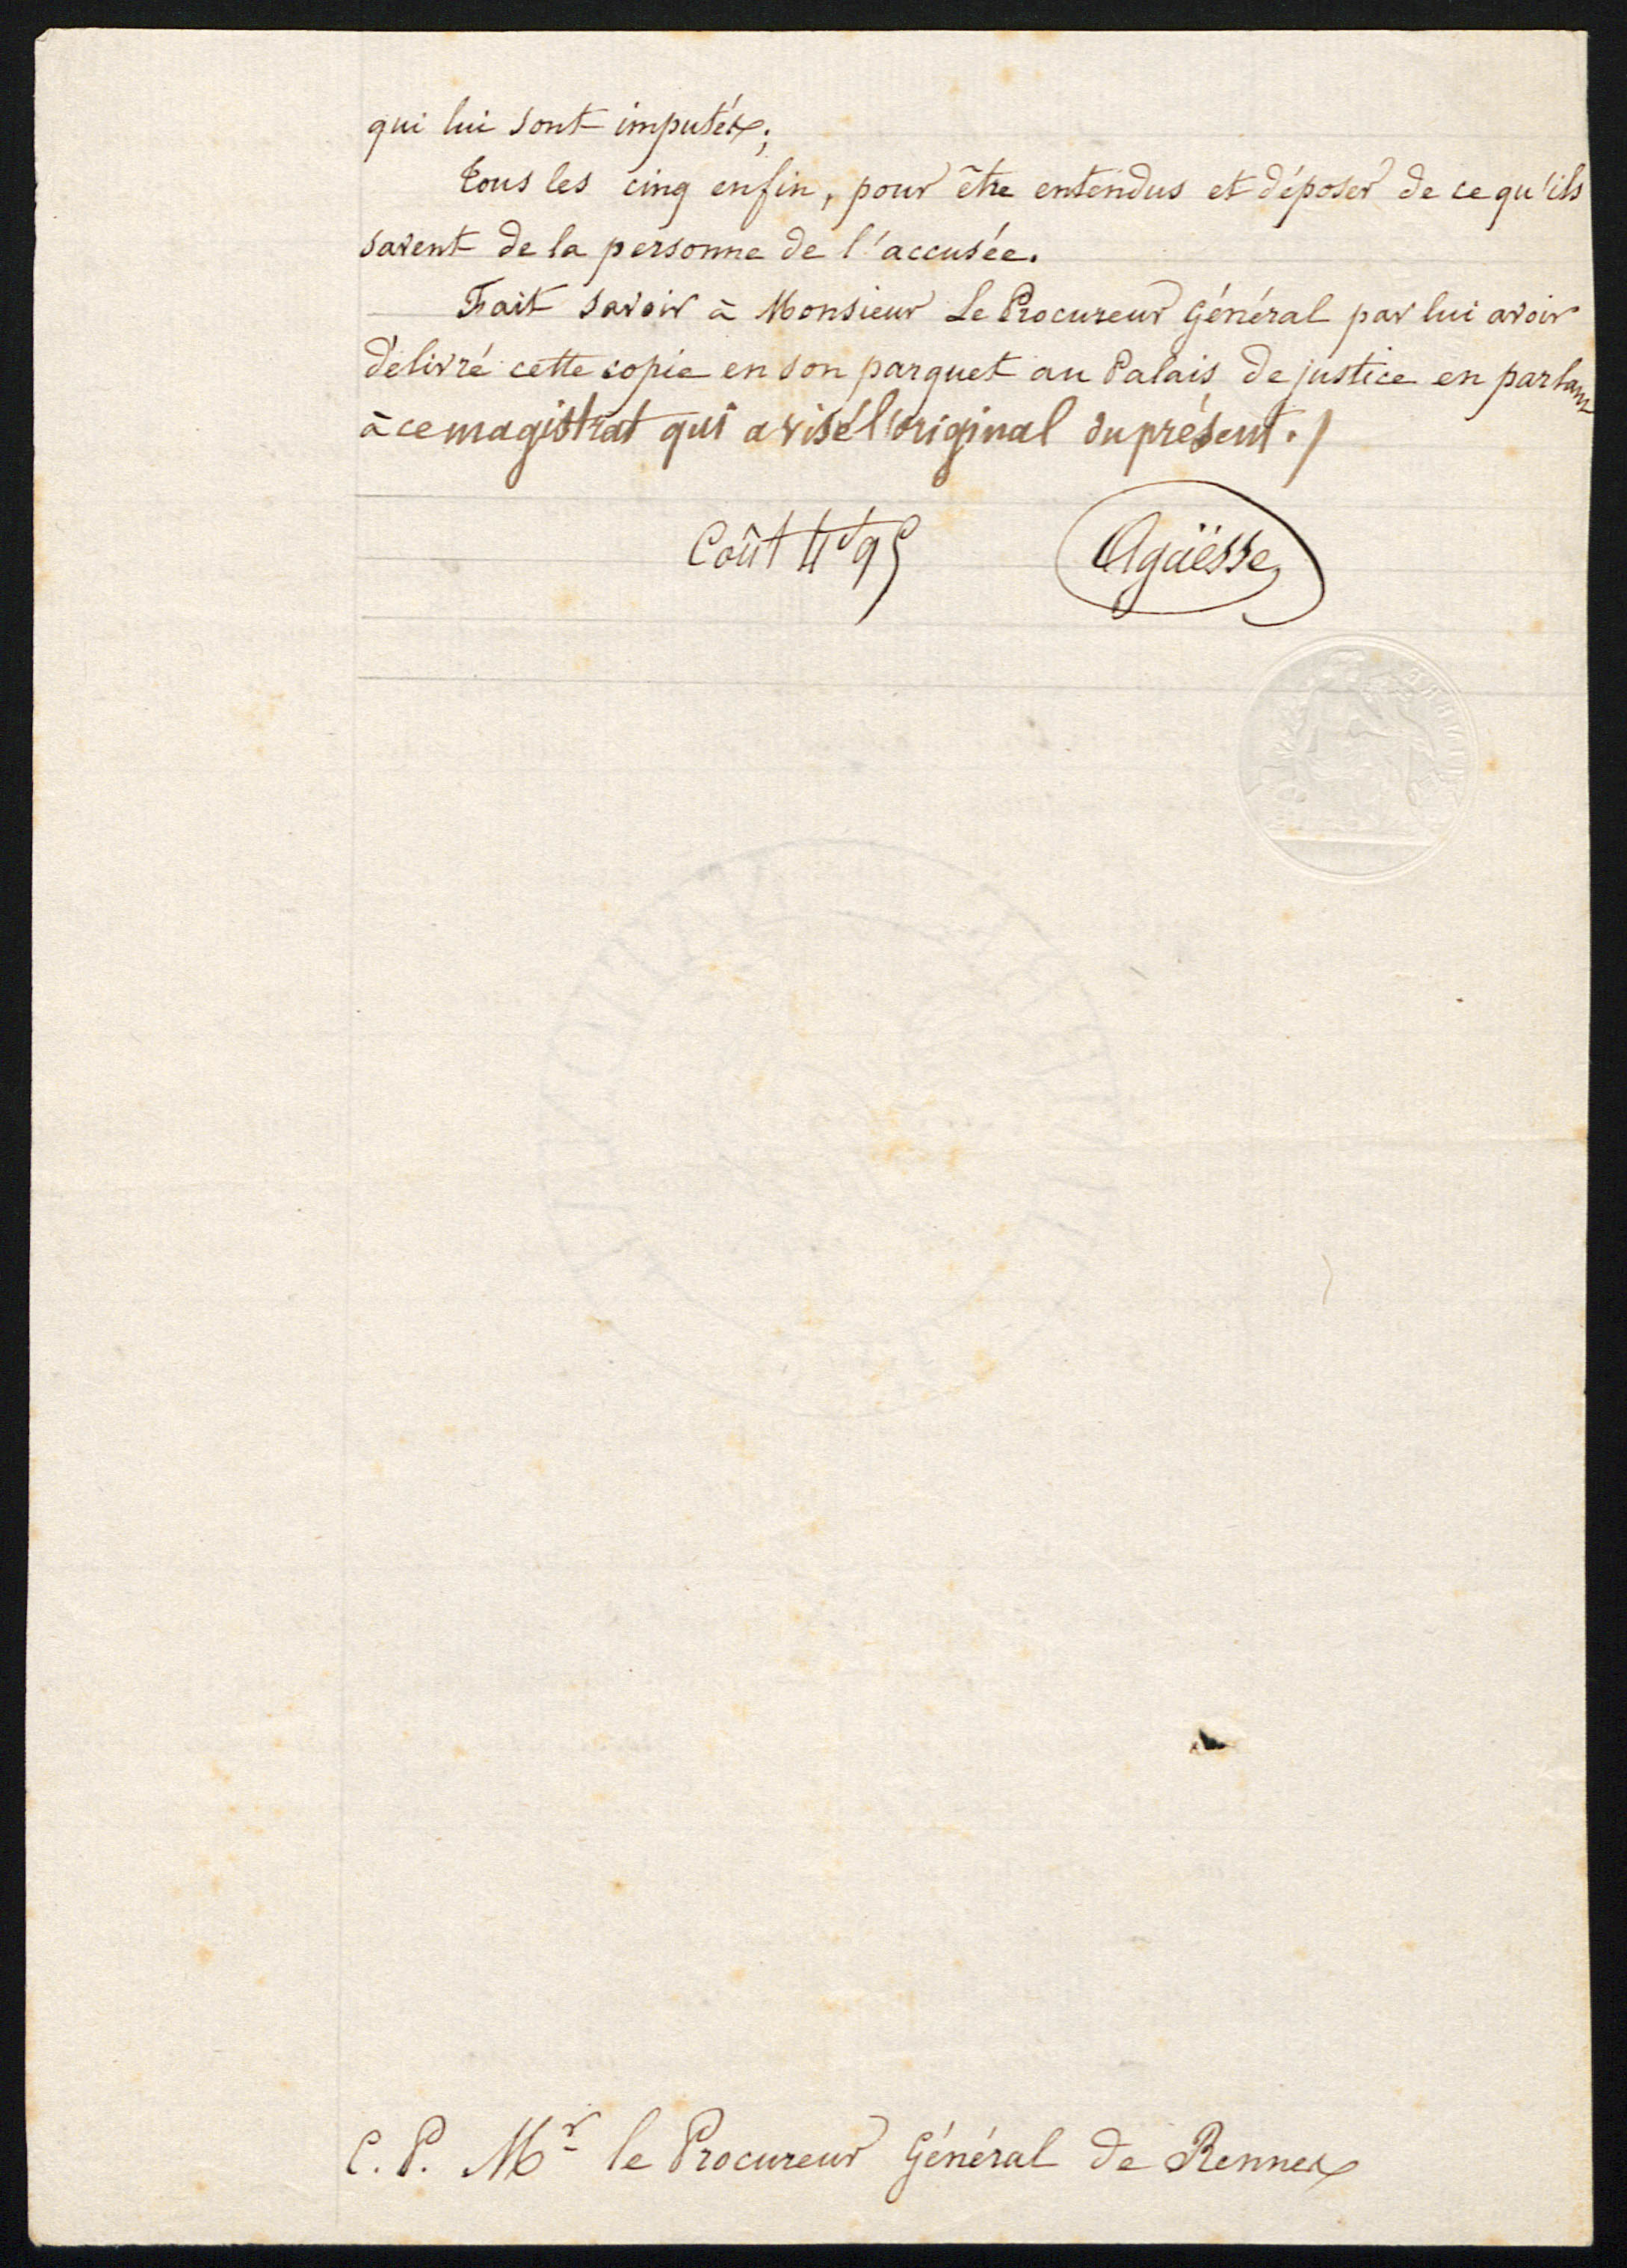 qui lui sont imputés;
tous les cinq enfin, pour être entendus et déposer de ce qu'ils
savent de la personne de l'accusée.
Fait savoir à Monsieur Le Procureur Général par lui avoir
délivré cette copie en son parquet au Palais de justice en parlant
à ce magistrat qui a visé l'original du présent./
Coût 4f 95
Agaësse
C. P. Mr le Procureur Général de Rennes